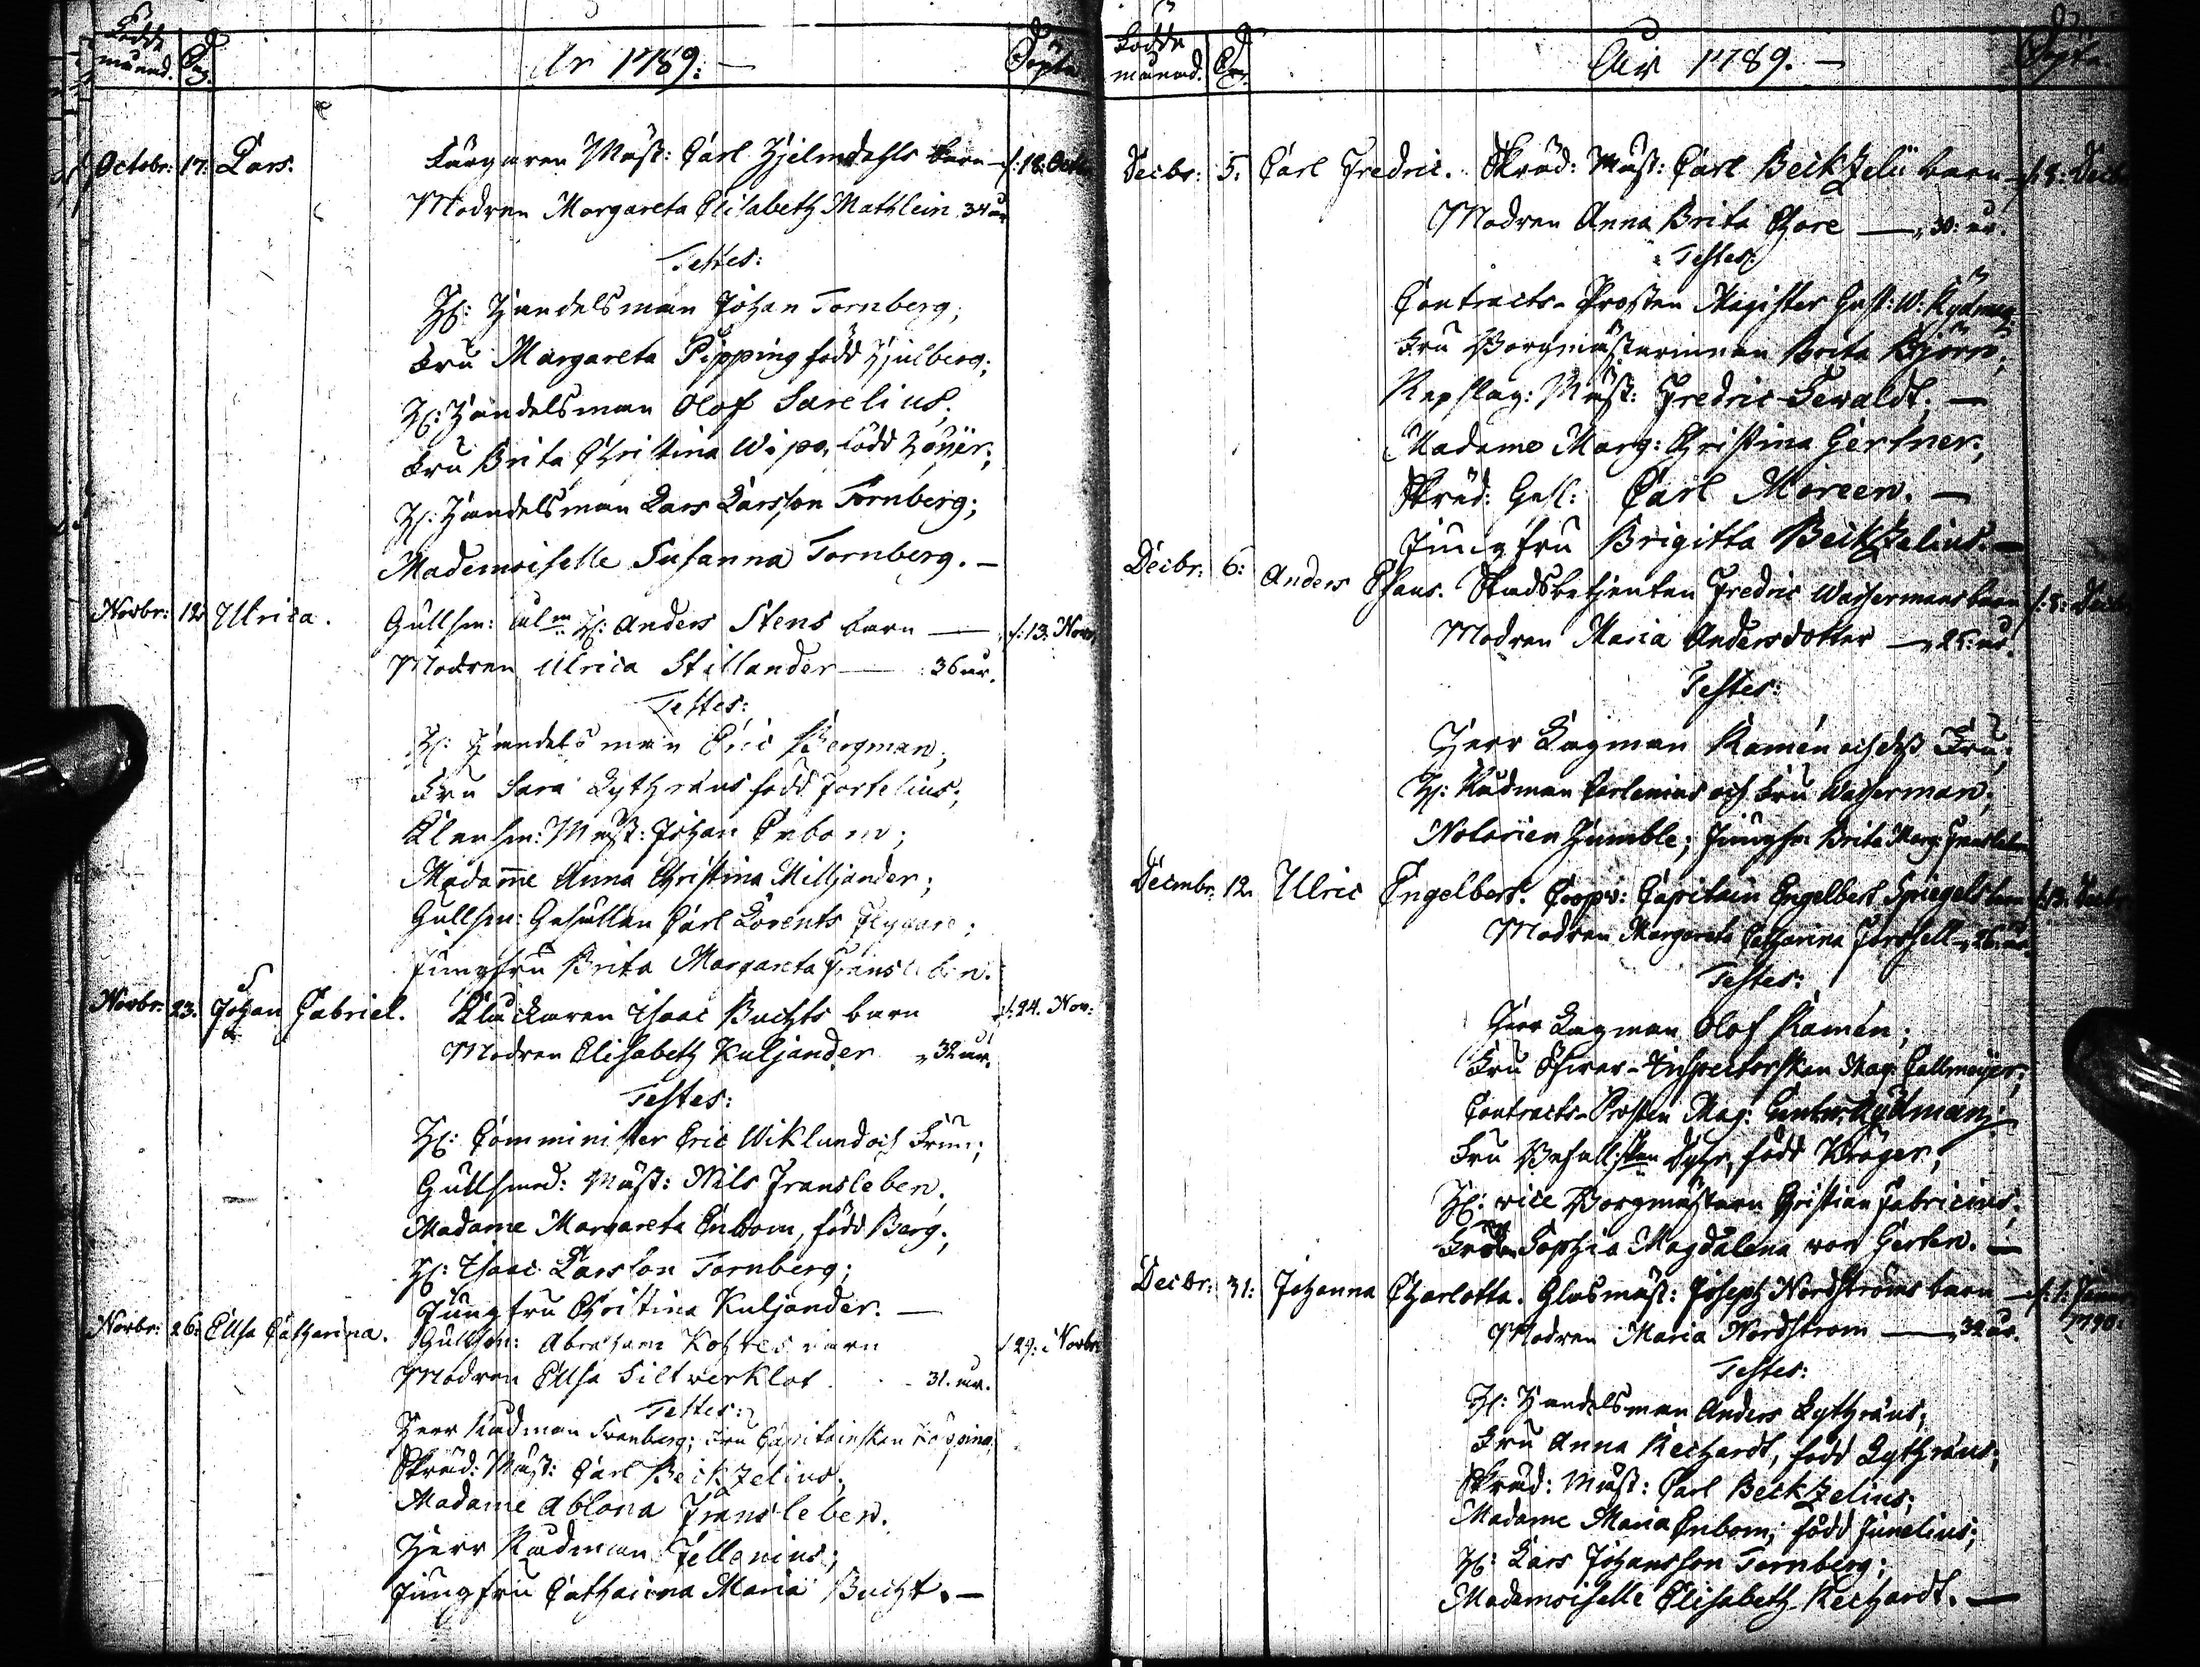 Födde
månad. Dag. År 1789. Döpte
Octobr: 17. Lars. Färgaren Mäst: Carl Hjelmdahls barn d: 18. Octo
Modren Margareta Elisabeth Mathlein 34 år
Testes:
H: Handelsman Johan Tornberg;
Fru Margareta Pipping född Hjulberg;
H: Handelsman Olof Sarelius;
Fru Brita Christina född Höijer;
H: Handelsman Lars Larsson Tornberg;
Mademoiselle Susanna Tornberg. —
Novbr: 12. Ulrica. Gullsm: H: Anders Stens barn — d: 13. Nov
Modren Ulrica Stillander — 36 år.
Testes:
H: Handelsman Eric Bergman;
Fru Sara Lythræus född Fortelius;
Mäst: Johan Enbom;
Madame Anna Christina Milljander;
Gullsm: Gesällen Carl Lorents
Jungfru Brita Margareta Fransleben.
Novbr: 23. Johan Gabriel. Klockaren Isaac Buchts barn d: 24. Nov:
Modren Elisabeth Kuljander 32 år.
Testes:
H: Comminister Eric Wiklund och Frun;
Gullsmed: Mäst: Nils Fransleben;
Madame Margareta Enbom, född Berg;
H: Isaac Larsson Tornberg;
Jungfru Christina Kuljander. —
Novbr: 26. Ellsa Catharina. Gullsm: Abraham barn d 29. Novbr
Modren Ellsa Silfverklot 31. år.
Testes:
Herr Rådman Svanberg; Fru Capitainskan
Skräd: Mäst: Carl Beckzelius;
Madame Ablona Fransleben.
Herr Rådman
Jungfru Catharina Maria Bucht. —
Födde
månad. Dag. År 1789. — Döpte
Decbr: 5. Carl Fredric. Skräd: Mäst: Carl Beckzelii barn d. 8: Decbr
Modren Anna Brita Thore — 30. år.
Testes:
Contracts-Prosten Magister Gust: W: Rydman;
Fru Borgmästarinnan Brita Björn;
Repslag: Mäst: Fredric Sewaldt; —
Madame Marg: Christina Gertner;
Skräd: Gesl: Carl Moreen. —
Jungfru Brigitta Beckzelius. —
Decbr: 6: Anders Chans. Stadsbetjenten Fredric Wassermans barn d: 8: Decbr
Modren Maria Andersdotter — 25: år.
Testes:
Herr Lagman Kamén och dess Fru;
H: Rådman Carlenius och Fru Wasserman;
Notarien Humble; Jungfr. Brita Marg: Fransleben
Decmbr: 12. Ulric Engelbert. Capitain Engelbert Spiegels barn d: 13. Decbr
Modren Margareta Catharina Forssell 26 år.
Testes:
Herr Lagman Olof Kamén;
Fru Mag: Callmeijer;
Contracts-Prosten Mag: Rydman;
Fru född Kröger;
H: vice Borgmästaren Christian Fabricius;
Fröken Sophia Magdalena von Gerten. —
Decbr: 31: Johanna Charlotta. Glasmäst: Joseph Nordströms barn d. 1. Januar
Modren Maria Nordström — 32 år. 1790.
Testes:
H: Handelsman Anders Lythræus;
Fru Anna Rechardt, född Lythræus;
Skräd: Mäst: Carl Beckzelius;
Madame Maria Enbom; född Junelius;
H: Lars Johansson Tornberg;
Mademoiselle Elisabeth Rechardt. —